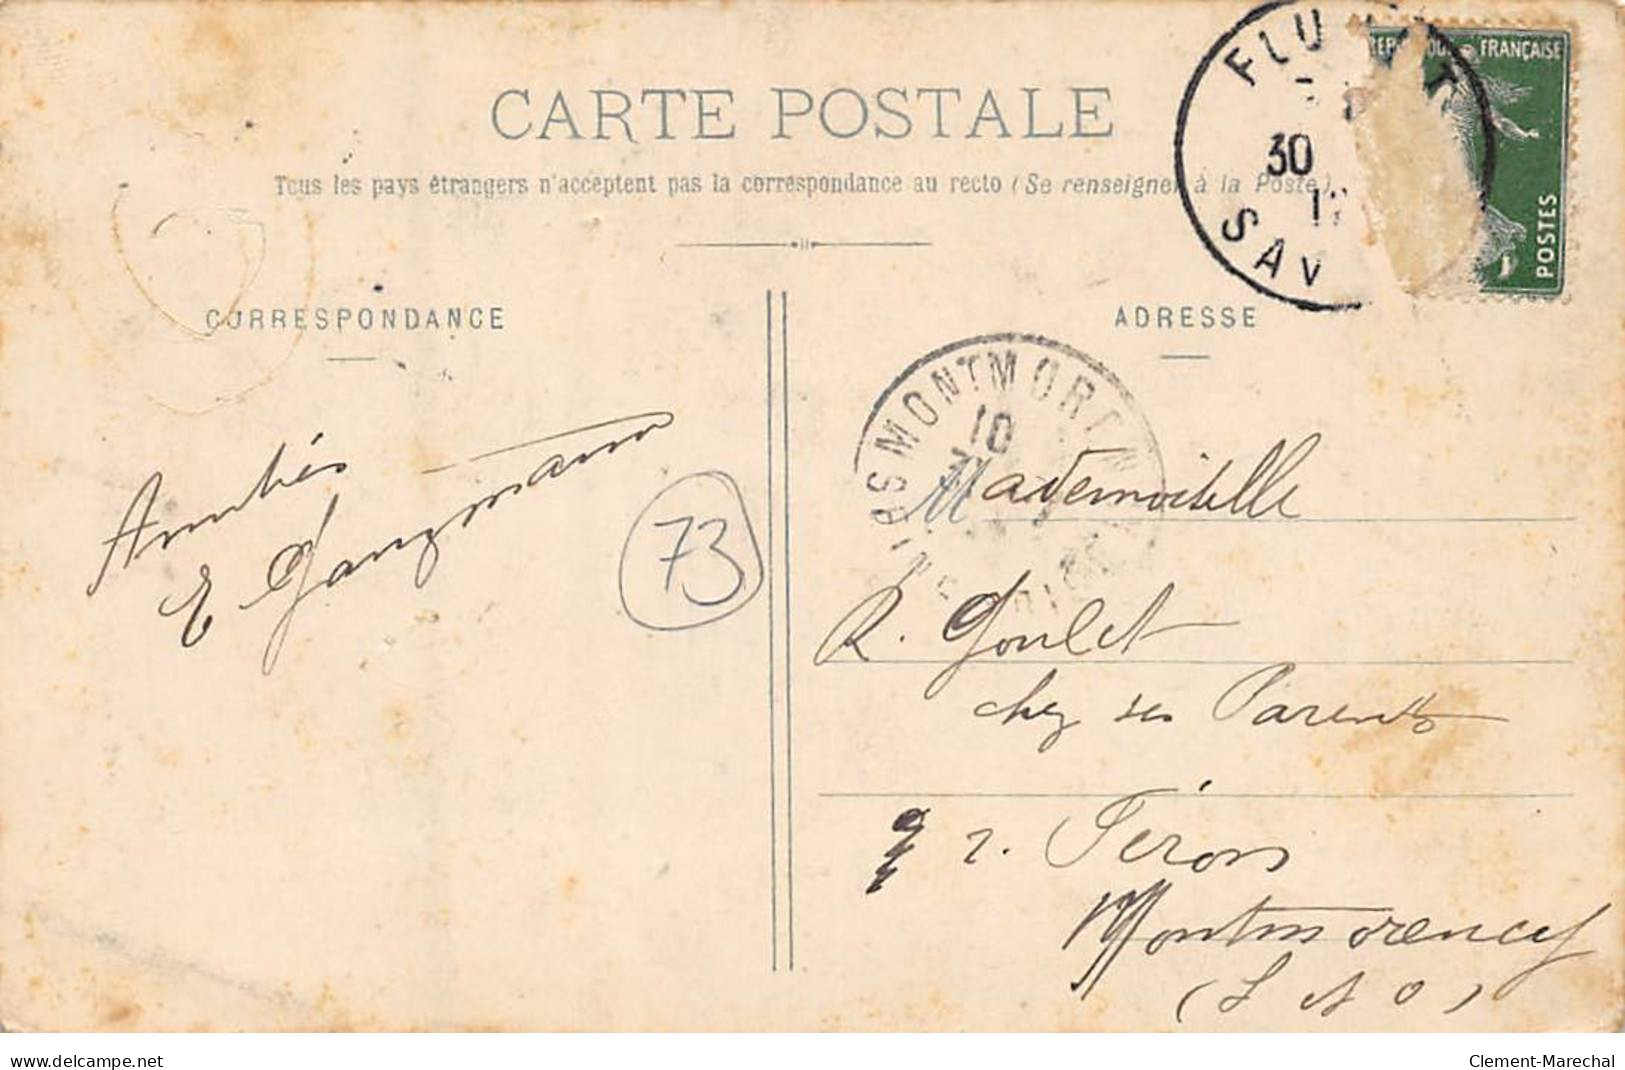 CARTE POSTALE
Tous les pays étrangers n'acceptent pas la correspondance au recto (Se renseigner à la Poste)
FLU T
30
SAV
FRANÇAISE
POSTES
CORRESPONDANCE
ADRESSE
MONTMOREN
10
Amitiés
E Ganzmann
73
Mademoiselle
R. Goulet
chez ses Parents
2. Féron
Montmorency
(S & O)
www.delcampe.net
Clement-Marechal